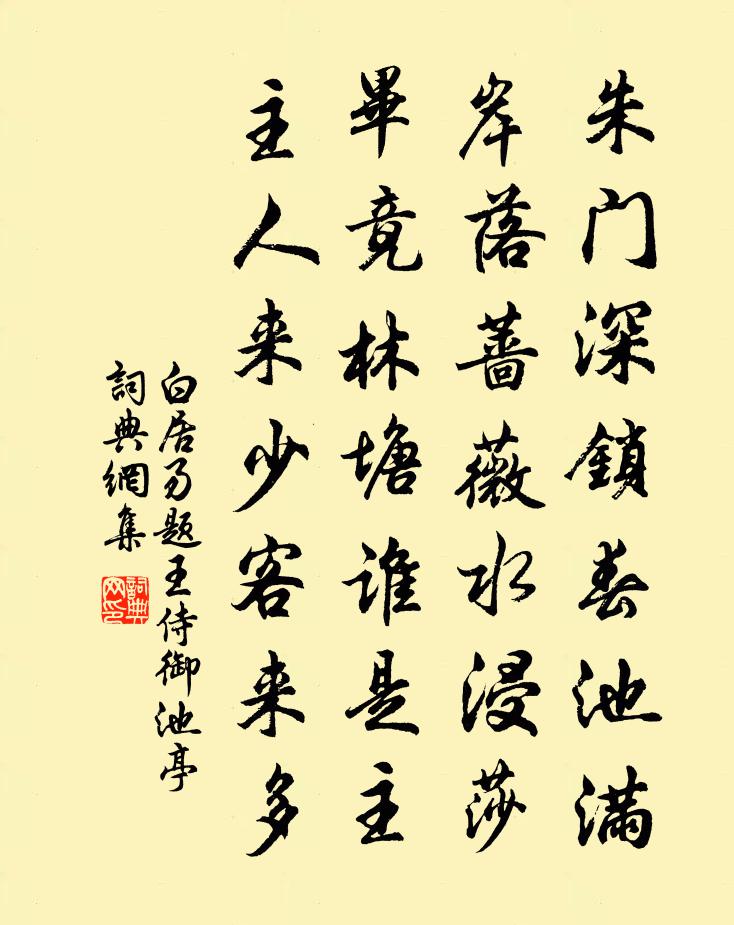 朱门深鎖春池满
岸落蔷薇水浸莎
畢竟林塘谁是主
主人来少客来多
白居易题王侍御池亭
詞典網集
詞典网印